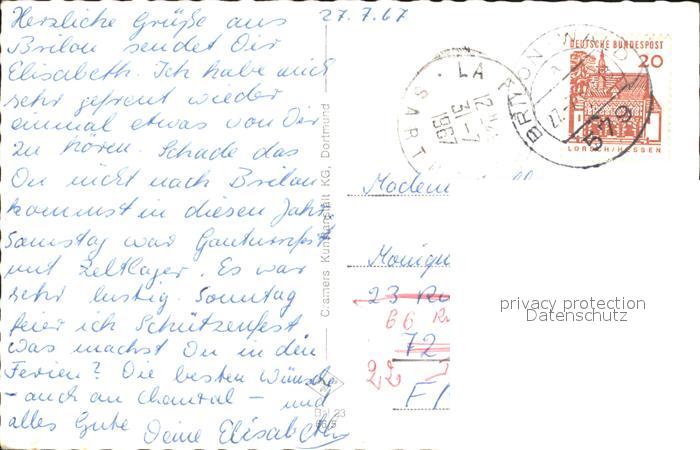 27.7.67
Herzliche Grüße aus
Brilon sendet Dir
Elisabeth. Ich habe mich
sehr gefreut wieder
einmal etwas von Dir
zu hören. Schade das
Du nicht nach Brilon
kommst in diesen Jahr.
Samstag war Gauturnfest
mit Zeltlager. Es war
sehr lustig. Sonntag
feier ich Schützenfest
Was machst Du in den
Ferien? Die besten Wünsche
- auch an Chantal - und
alles Gute Deine Elisabeth
Cramers Kunstanstalt KG, Dortmund
Bri 23
LA
12
31-7
1967
SART
BRILON WALD
579
DEUTSCHE BUNDESPOST
20
LORSCH/HESSEN
Madem
Moniqu
23 Ru
66 R
72
22
F
privacy protection
Datenschutz